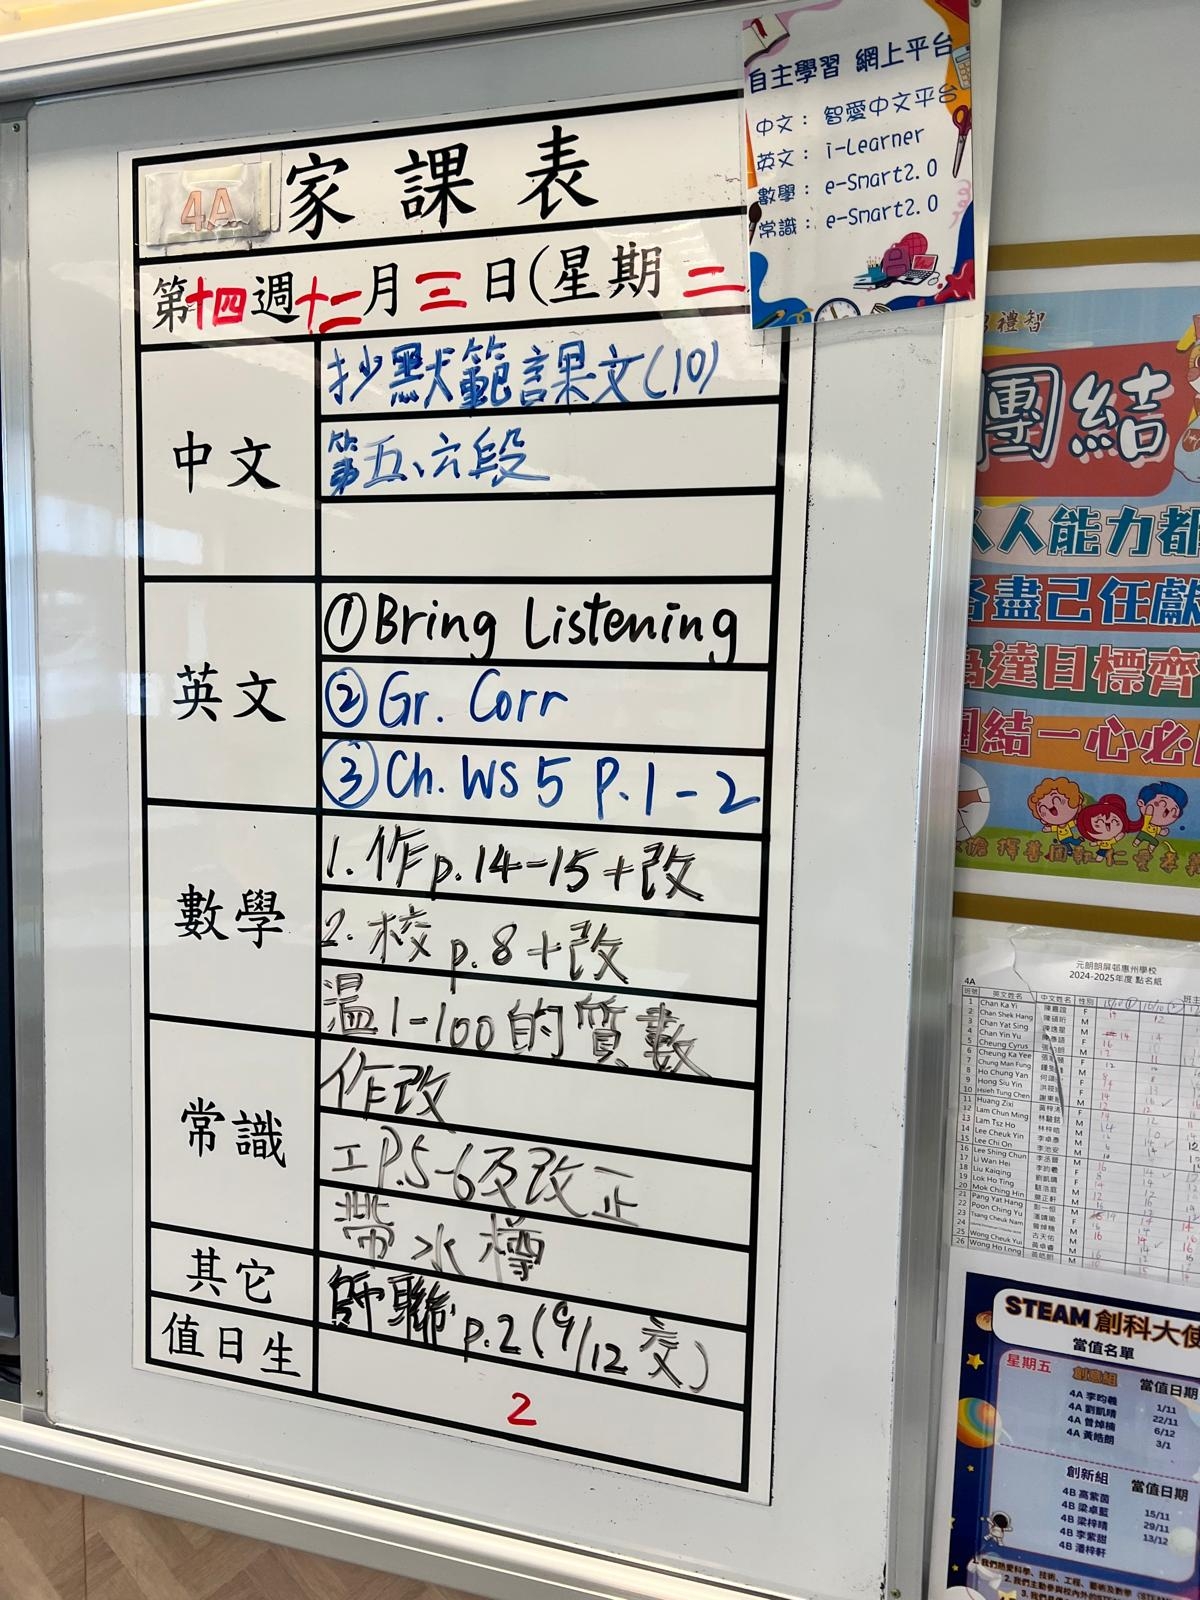 4A 家課表
第十四週十二月三日(星期二
中文
抄默範課文(10)
第五、六段
英文
①Bring Listening
②Gr. Corr
③Ch. WS 5 P.1-2
數學
1.作p.14-15+改
2.校p.8+改
溫1-100的質數
常識
作改
工P.5-6及改正
帶水樽
其它
師聯p.2(9/12交)
值日生
2
自主學習 網上平台
中文：智愛中文平台
英文：i-Learner
數學：e-Smart2.0
常識：e-Smart2.0
禮智
團結
人人能力都
各盡己任獻
為達目標齊
團結一心必
元朗朗屏邨惠州學校
2024-2025年度 點名紙
4A
班號 英文姓名 中文姓名 性別
1 Chan Ka Yi
2 Chan Shek Hang
3 Chan Yat Sing
4 Chan Yin Yu
5 Cheung Cyrus
6 Cheung Ka Yee
7 Chung Man Fung
8 Ho Chung Yan
9 Hong Siu Yin
10 Hsieh Tung Chen
11 Huang Zixi
12 Lam Chun Ming
13 Lam Tsz Ho
14 Lee Cheuk Yin
15 Lee Chi On
16 Lee Shing Chun
17 Li Wan Hei
18 Liu Kaiqing
19 Lok Ho Ting
20 Mok Ching Hin
21 Pang Yat Hang
22 Poon Ching Yu
23 Tsang Cheuk Nam
24
25 Wong Cheuk Yui
26 Wong Ho Long
STEAM 創科大使
當值名單
星期五 創意組 當值日期
4A 李昀羲 1/11
4A 劉凱晴 22/11
4A 曾焯楠 6/12
4A 黃皓朗 3/1
創新組 當值日期
4B 高紫茵
4B 梁卓藍 15/11
4B 梁梓晴 29/11
4B 李紫甜 13/12
4B 潘梓軒
1.我們熱愛科學、技術、工程、藝術及數學